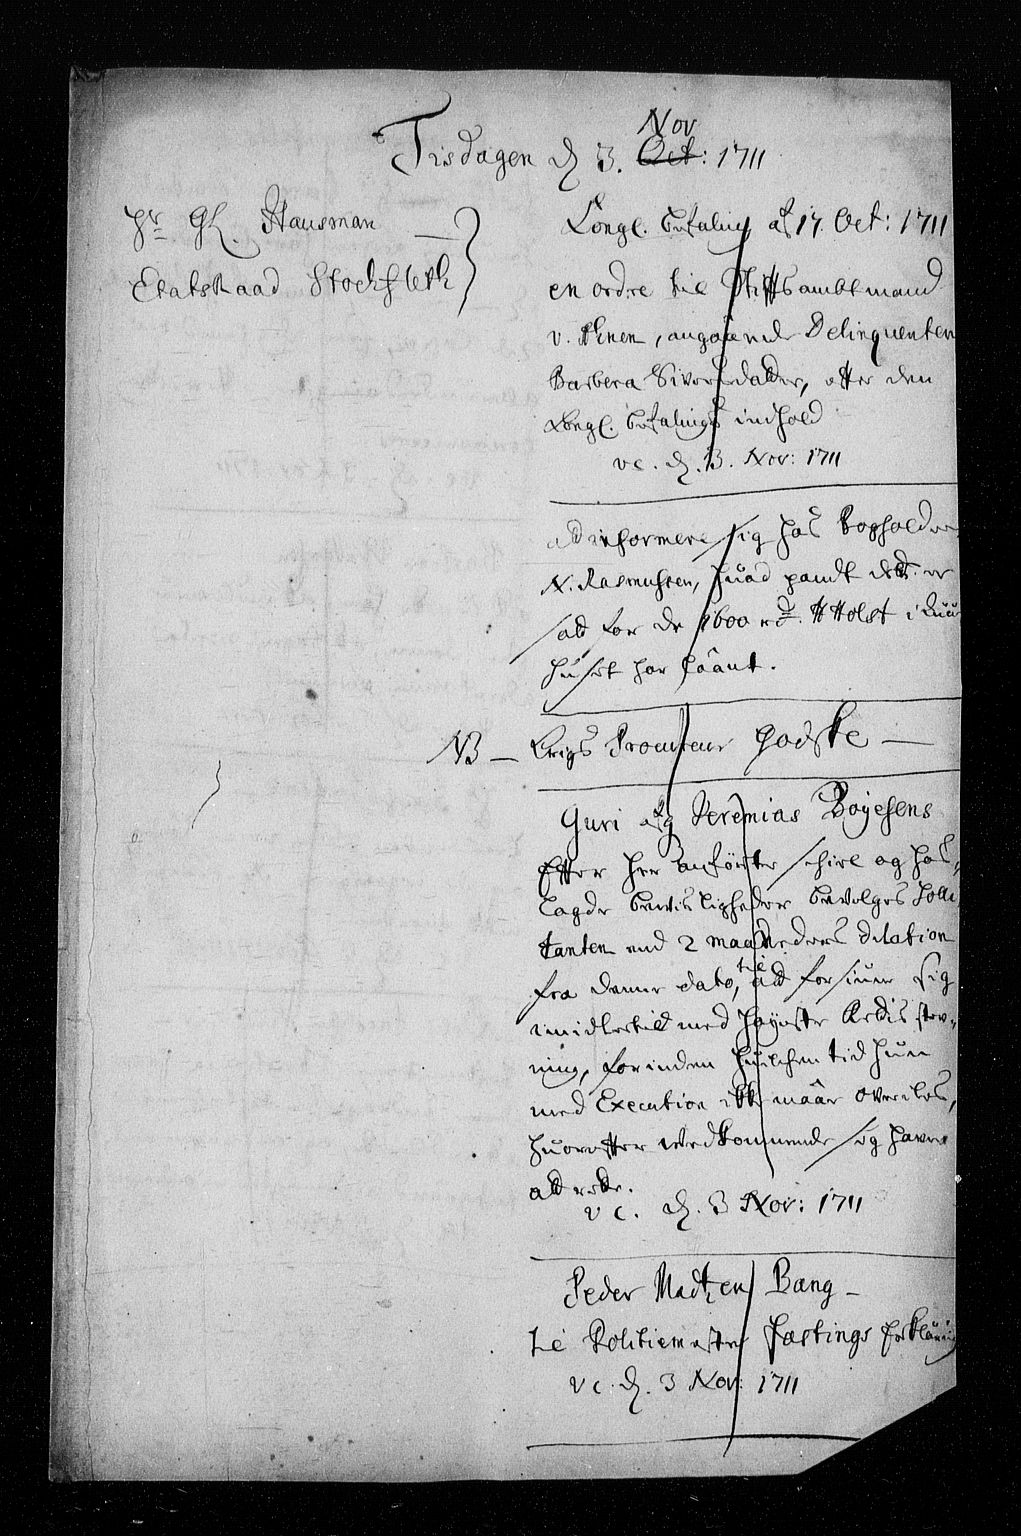 Nov
Tirsdagen d. 3. Oct: 1711
Hr. GL. Hausman
Etatsraad Stockfleth
Kongl. befaling af 17. Oct: 1711
en ordre til Stiftsambtmand
v. Ahnen, angaaende Delinquenten
Barbera Siversdatter, efter den
Kongl. befalings indhold
vc. d. 3. Nov: 1711
at informere sig hos Bogholder
N. Rasmussen, huad pandt der er
sat for de 1600 rd. H Holst i
huset har laant.
NB - Krigs Procureur Godske -
Guri afg Jeremias Boyesens
Efter her anförte schiel og hos-
lagde bevisligheder bevilges Solli
tanten end 2 maaneders dilation
fra denne dato, til at forsiune sig
imidlertid med Høyeste Rettis stev-
ning, forinden huilchen tid hun
med Execution ikke maa overiles,
huorefter vedkommende sig haver
at rette.
vc. d. 3 Nov: 1711
Peder Madtzen Bang -
til Politiemester Fæstings Erklæring
vc. d. 3 Nov: 1711